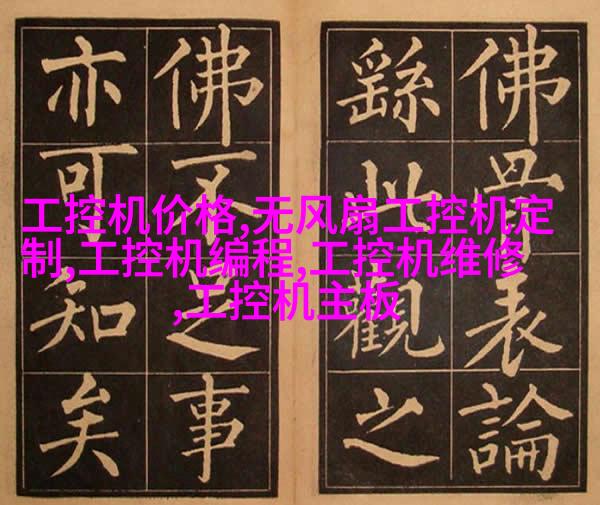 佛骨表論
繇此觀之
佛不足事
亦可知矣
工控机价格,无风扇工控机定
制,工控机编程,工控机维修
,工控机主板